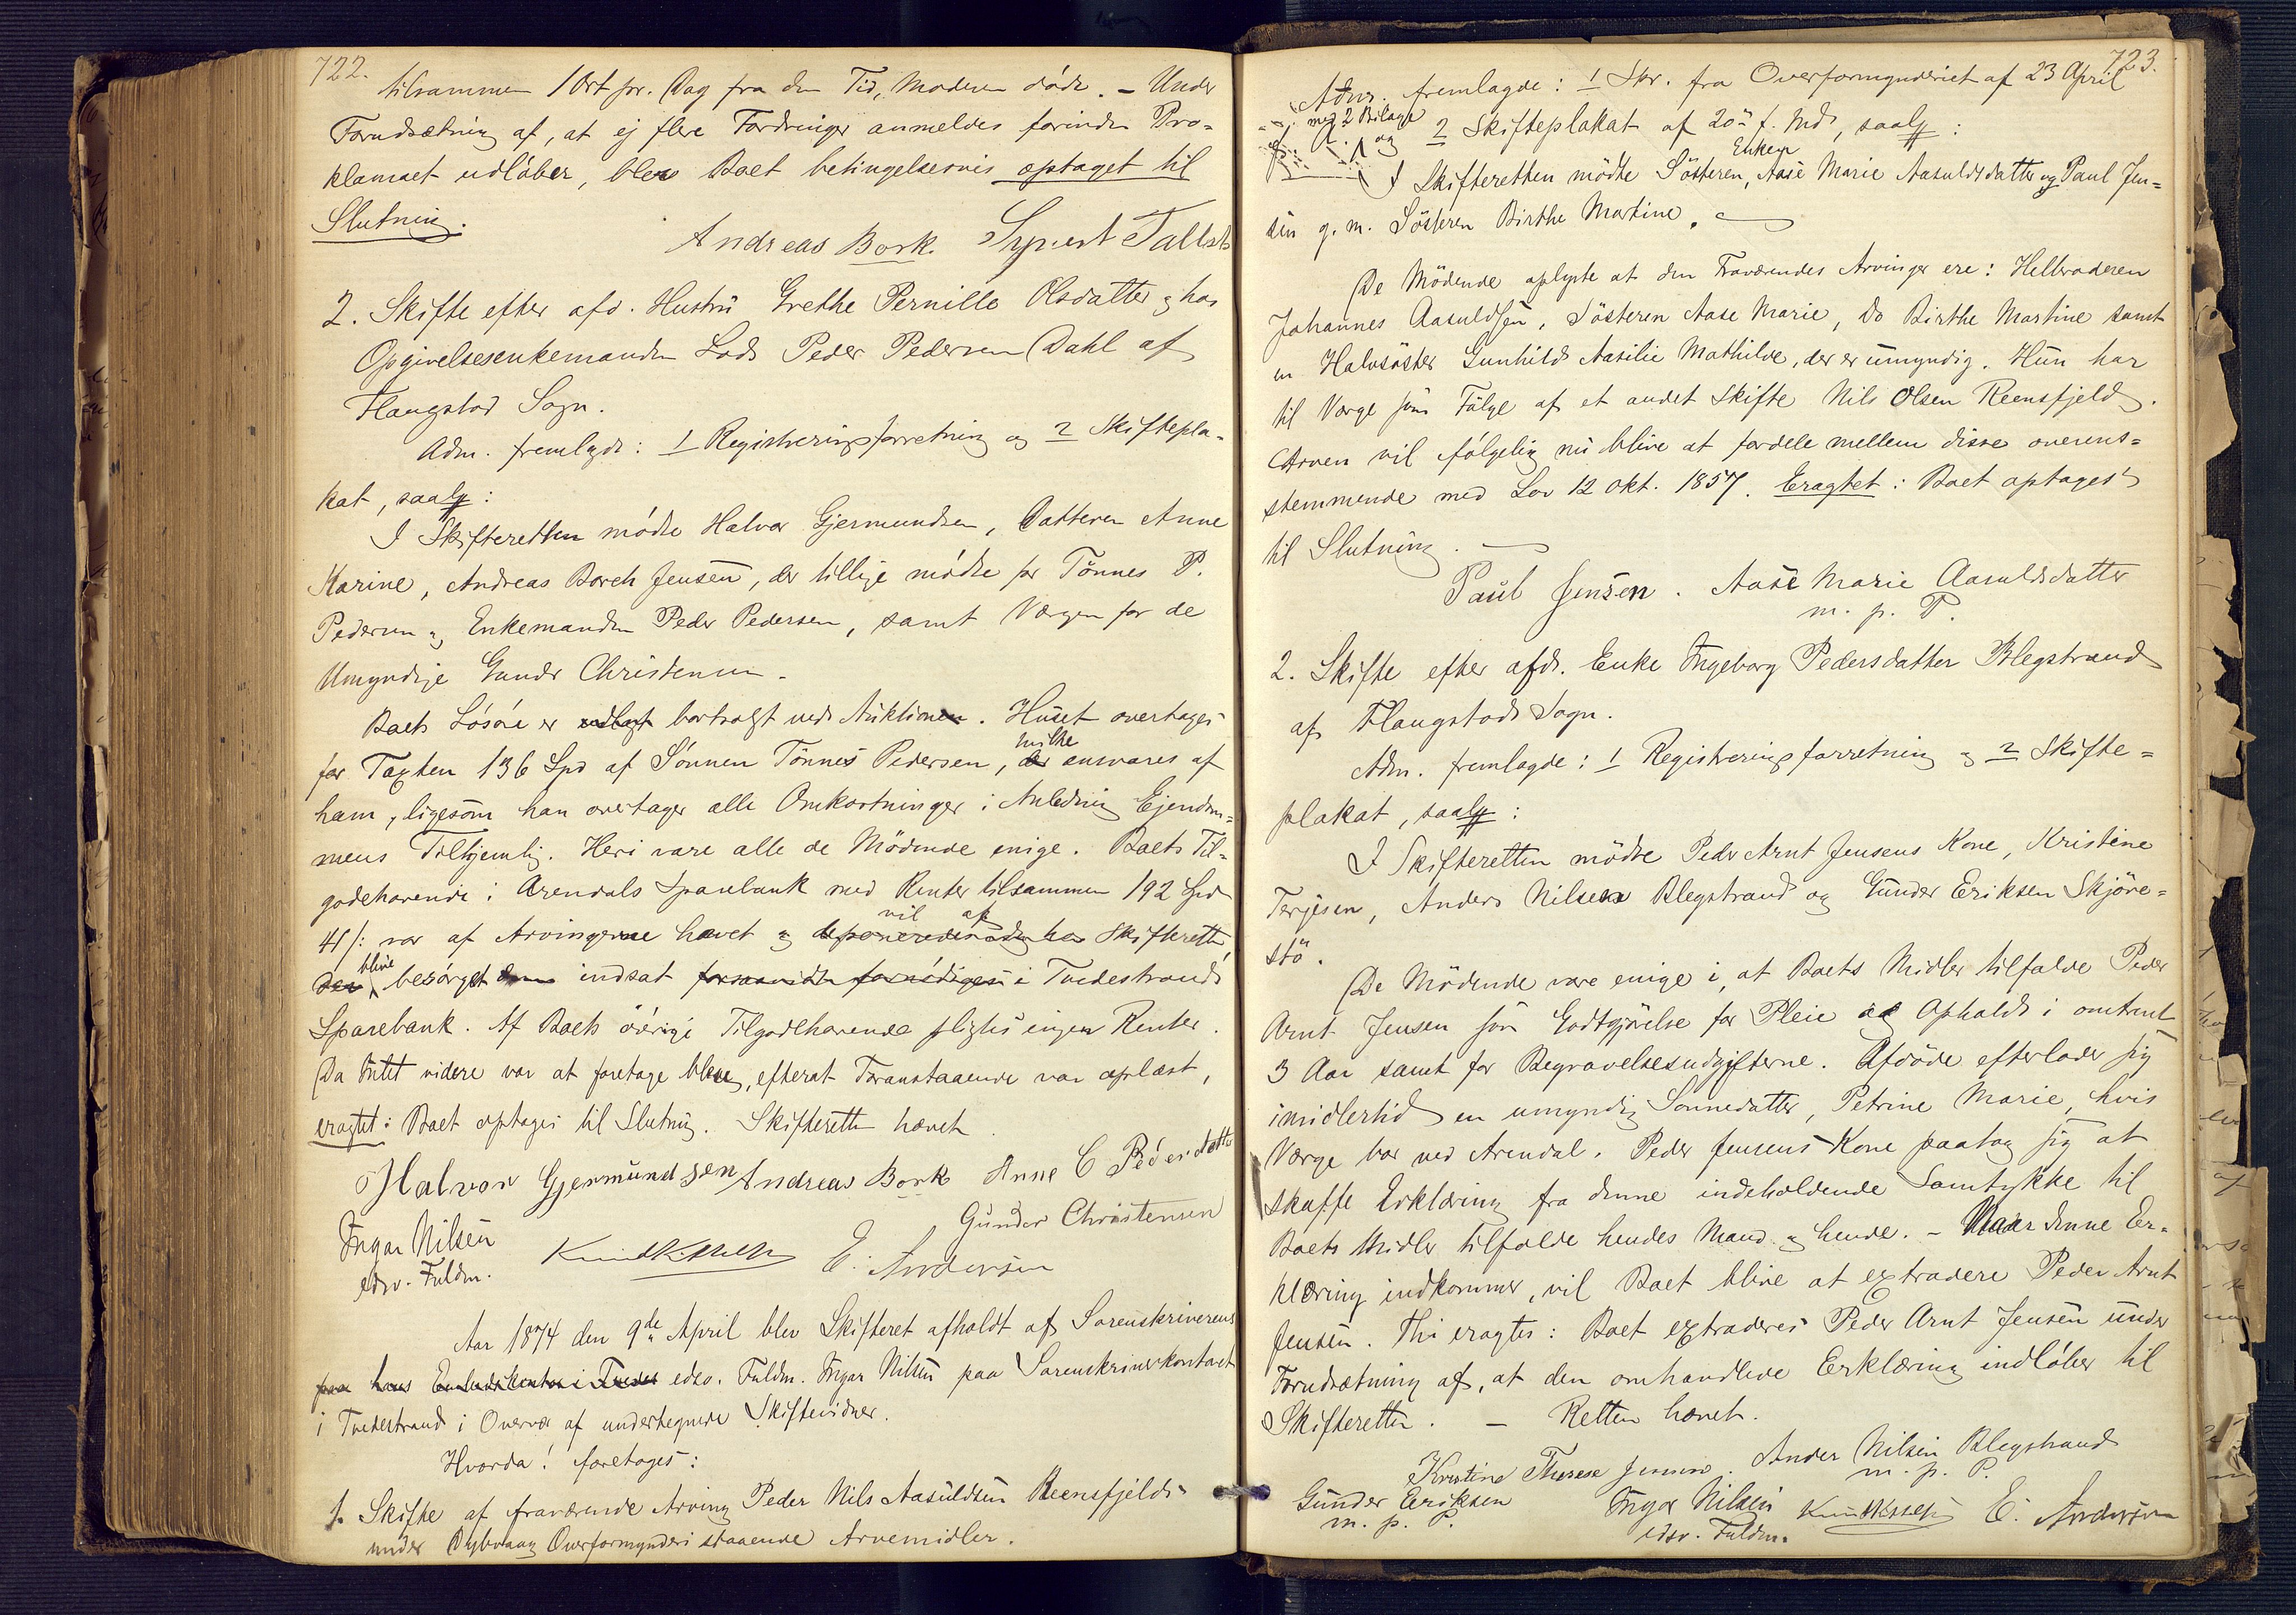 722.
tilsammen 1 Ort pr. Dag fra den Tid, Moderen døde. – Under
Forudsætning af, at ej flere Fordringer anmeldes forinden Pro-
klamaet udløber, blev Boet betingelsesvis optaget til
Slutning.
Andreas Bork.
2. Skifte efter afd. Hustru Grethe Pernille Olsdatter og hos
Opgivelsesenkemanden Lods Peder Pedersen Dahl af
Flaugstad Sogn.
Adm. fremlagde: 1 Registreringsforretning og 2 Skiftepla-
kat, saalg:
I Skifteretten mödte Halvor Gjermundsen, Datteren Anne
Karine, Andreas Borch Jensen, der tillige mödte for Tönnes P.
Pedersen og Enkemanden Peder Pedersen, samt Værgen for de
Umyndige Gunder Christensen.
Boets Lösöre er bortsolgt ved Auktionen. Huset overtages
for Taxten 136 Spd af Sønnen Tönnes Pedersen, hvilke ansvares af
ham, ligesom han overtager alle Omkostninger i Anledning Ejendom-
mens Tilhjemling. Heri vare alle de Mödende enige. Boets Til-
godehavende i Arendals Sparebank med Renter tilsammen 192 Spd
41 /: var af Arvingerne hævet og vil af Skifteretten
blive besörget indsat i Tvedestrands
Sparebank. Af Boets övrige Tilgodehavende pligtes ingen Renter.
Da Intet videre var at foretage blev, efterat Foranstaaende var oplæst,
eragtet: Boet optages til Slutning. Skifteretten hævet.
Halvor Gjermundsen Andreas Bork Anne C Pedersdatter
Gunder Christensen
Ingar Nilsen E. Andersen
edsv. Fuldm.
Aar 1874 den 9de April blev Skifteret afholdt af Sorenskriverens
edsv. Fuldm. Ingar Nilsen paa Sorenskriverkontoret
i Tvedestrand i Overvær af undertegnede Skiftevidner.
Hvorda! foretages:
1. Skifte af fraværende Arving Peder Nils Aasuldsen Reensfjelds
under Dybvaag Overformynderi staaende Arvemidler.
723.
Adm. fremlagde: 1 Skr. fra Overformynderiet af 23 April
med 2 Bilage
og 2 Skifteplakat af 20de f. Md, saalg:
Enken
I Skifteretten mödte Sösteren, Aase Marie Aasuldsdatter og Paul Jen-
sen g. m. Sösteren Birthe Martine.
De Mödende oplyste at den Fraværendes Arvinger ere: Helbroderen
Johannes Aasuldsen, Sösteren Aase Marie, Do Birthe Martine samt
en Halvsöster Gunhild Aasilie Mathilde, der er umyndig. Hun har
til Værge som Fölge af et andet Skifte Nils Olsen Reensfjeld.
Arven vil fölgelig nu blive at fordele mellem disse overens-
stemmende med Lov 12 Okt. 1857. Eragtet: Boet optages
til Slutning.
Paul Jensen. Aase Marie Aasuldsdatter
m. p. P.
2. Skifte efter afd. Enke Ingeborg Pedersdatter Blegstrand
af Flaugstads Sogn.
Adm. fremlagde: 1 Registreringsforretning og 2 Skifte-
plakat, saalg:
I Skifteretten mödte Peder Arnt Jensens Kone, Kristine
Terjesen, Anders Nilsen Blegstrand og Gunder Eriksen Skjöre-
stö.
De Mödende vare enige i, at Boets Midler tilfalde Peder
Arnt Jensen som Godtgjörelse for Pleie og Ophold i omtrent
3 Aar samt for Begravelsesudgifterne. Afdöde efterlader sig
imidlertid en umyndig Sønnedatter, Petrine Marie, hvis
Værge bor ved Arendal. Peder Jensens Kone paatog sig at
skaffe Erklæring fra denne indeholdende Samtykke til
Boets Midler tilfalde hendes Mand og hende. – Naar denne Er-
klæring indkommer, vil Boet blive at extradere Peder Arnt
Jensen. Thi eragtes: Boet extraderes Peder Arnt Jensen under
Forudsætning af, at den omhandlede Erklæring indløber til
Skifteretten. – Retten hævet.
Kristine Therese Jensen. Anders Nilsen Blegstrand
m. p. P.
Gunder Eriksen Ingar Nilsen E. Andersen
m. p. P. edsv. Fuldm.